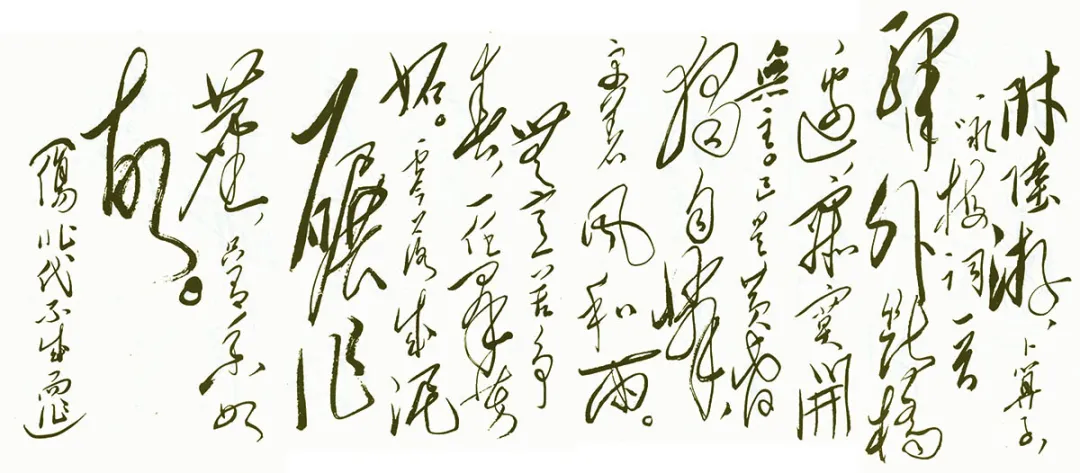 附陸游、卜算子、
咏梅词一首
驛外断橋
邊、寂寞開
無主。已是黄昏
獨自愁、
更著风和雨。
無意苦争
春、一任群芳
妒。零落成泥
碾作
塵、只有香如
故。